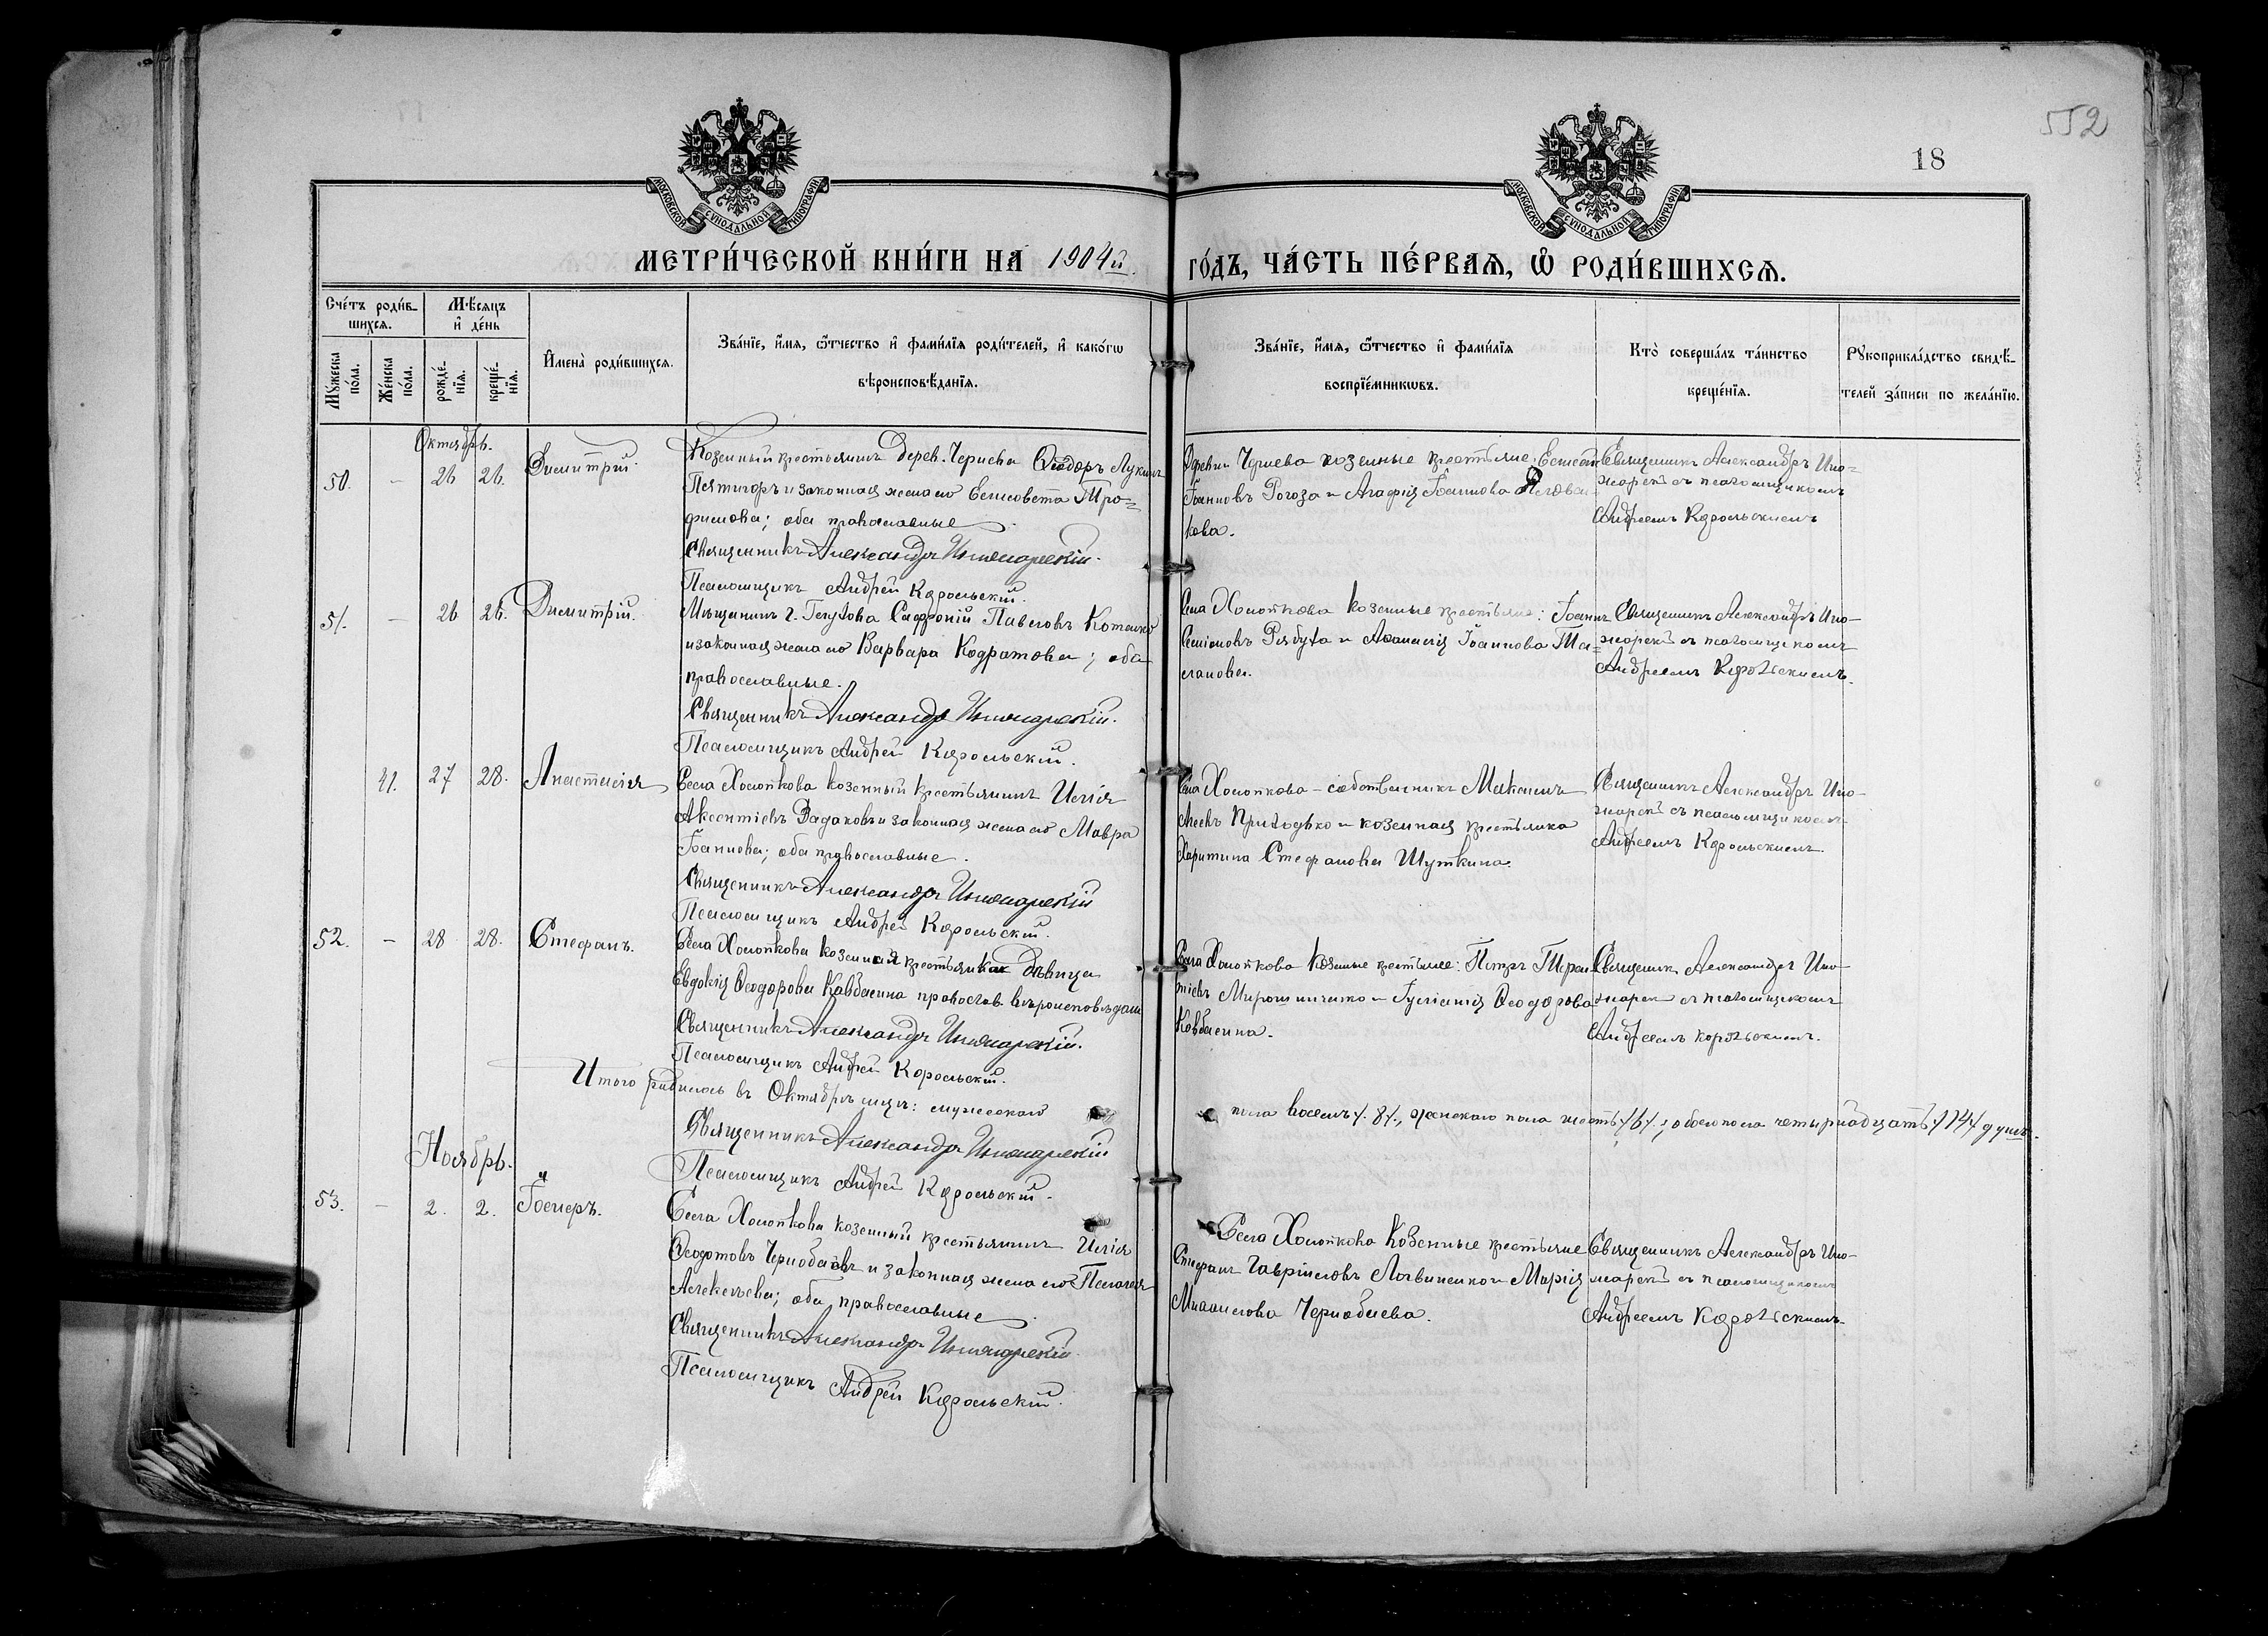 552
18
МОСКОВСКОЙ СѴНОДАЛЬНОЙ ТИПОГРАФІИ
МОСКОВСКОЙ СѴНОДАЛЬНОЙ ТИПОГРАФІИ
МЕТРИ́ЧЕСКОЙ КНИ́ГИ НА 1904й
ГО́ДЪ, ЧА́СТЬ ПЕ́РВАѦ, Ѡ҆ РОДИ́ВШИХСѦ.
Сче́тъ роди́в-
шихсѧ.
Мѣ́сѧцъ
и҆ де́нь
Мꙋ́жеска по́ла.
Же́нска по́ла.
рожде́-
нїѧ.
креще́-
нїѧ.
И҆мена̀ роди́вшихсѧ.
Зва́нїе, и҆́мѧ, ѻ҆́тчество и҆ фами́лїѧ роди́телей, и҆ како́гѡ
вѣроисповѣ́данїѧ.
Зва́нїе, и҆́мѧ, ѻ҆́тчество и҆ фами́лїѧ
воспрїе́мникѡвъ.
Кто̀ соверша́лъ та́инство
креще́нїѧ.
Рꙋкоприкла́дство свидѣ́-
телей за́писи по жела́нїю.
Октябрь.
50. - 26 26. Димитрій.
Козенный крестьянинъ дерев. Чернева Ѳеодоръ Лукинъ
Пятигоръ и законная жена его Елисавета Тро-
фимова; оба православные.
Священникъ Александръ
Псаломщикъ Андрей Корольскій.
Деревни Чернева козенные крестьяне:
Іоанновъ Рогоза и Агафія Іоаннова
кова.
Священникъ Александръ
съ псаломщикомъ
Андреемъ Корольскимъ
51. - 26 26. Димитрій.
Мѣщанинъ г. Софроній Павловъ Котенко
и законная жена его Варвара Кодратова; оба
православные.
Священникъ Александръ
Псаломщикъ Андрей Корольскій.
Села Холопкова козенные крестьяне: Іоаннъ
Семіоновъ Рябуха и Аѳанасія Іоаннова
Священникъ Александръ
съ псаломщикомъ
Андреемъ Корольскимъ.
41. 27 28. Анастасія
Села Холопкова козенный крестьянинъ Илія
Аксентіевъ и законная жена его Мавра
Іоаннова; оба православные.
Священникъ Александръ
Псаломщикъ Андрей Корольскій.
Села Холопкова - собственникъ Максимъ
Приходько и козенная крестьянка
Харитина Стефанова Шуткина.
Священникъ Александръ
съ псаломщикомъ
Андреемъ Корольскимъ.
52. - 28 28. Стефанъ.
Села Холопкова козенная крестьянка дѣвица
Евдокія Ѳеодорова Ковбасина православ. вѣроисповѣдан.
Священникъ Александръ
Псаломщикъ Андрей Корольскій.
Села Холопкова козенные крестьяне: Петръ Терен-
тіевъ Мирошниченко и Іуліанія Ѳеодорова
Ковбасина.
Священникъ Александръ
съ псаломщикомъ
Андреемъ Корольскимъ.
Итого родилось въ Октябрѣ мѣц.: мужескаго
пола восемь /8/, женскаго пола шесть /6/, обоего пола четырнадцать /14/ душъ.
Священникъ Александръ
Псаломщикъ Андрей Корольскій.
Ноябрь.
53. - 2. 2.
Села Холопкова козенный крестьянинъ Илія
Ѳеодотовъ Чернобаевъ и законная жена его Пелагея
Алексѣева; оба православные.
Священникъ Александръ
Псаломщикъ Андрей Корольскій.
Села Холопкова козенные крестьяне
Стефанъ Гавріиловъ Логвиненко и Марія
Михаилова Чернобаева.
Священникъ Александръ
съ псаломщикомъ
Андреемъ Корольскимъ.